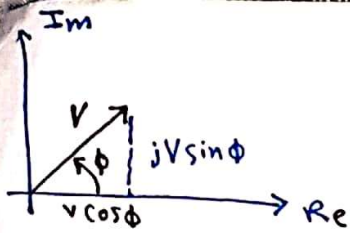 Im
V
φ
jVsinφ
vcosφ
Re